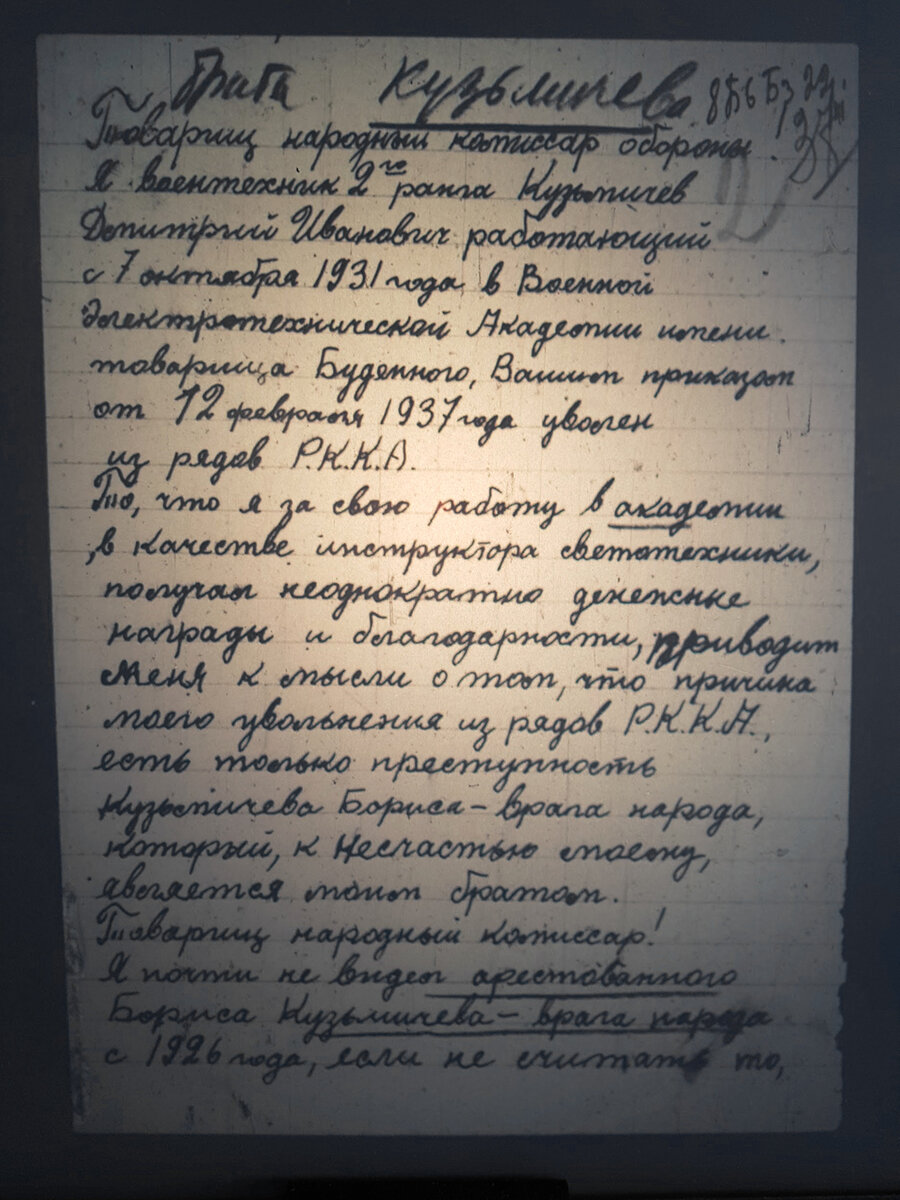 брата Кузьмичева
Товарищ народный комиссар обороны.
Я воентехник 2го ранга Кузьмичев
Дмитрий Иванович работающий
с 7 октября 1931 года в Военной
Электротехнической Академии имени
товарища Буденного, Вашим приказом
от 12 февраля 1937 года уволен
из рядов Р.К.К.А.
То, что я за свою работу в академии
, в качестве инструктора светотехники,
получал неоднократно денежные
награды и благодарности, приводит
меня к мысли о том, что причина
моего увольнения из рядов Р.К.К.А.,
есть только преступность
Кузьмичева Бориса – врага народа,
который, к несчастью моему,
является моим братом.
Товарищ народный комиссар!
Я почти не видел арестованного
Бориса Кузьмичева – врага народа
с 1926 года, если не считать то,